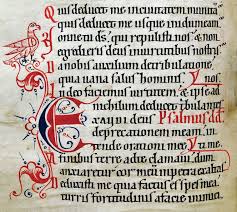 Quis deducet me in ciuitatem munita
quis deducet me usque in idumeam.
onne tu ds, qui repulisti nos. & non
egredieris deus in uirtutibus nostris.
a nobis auxilium de tribulatione
quia uana salus hominis.
n deo faciemus uirtutem. & ipse ad
nichilum deducet tribulantes
xaudi deus Psalmus dd
deprecationem meam. in
tende orationi mee
finibus terre ad te clamaui. dum
anxiaretur cor meum in petra exaltasti
deduxisti me quia factus es spes mea.
turris fortitudinis a facie inimici